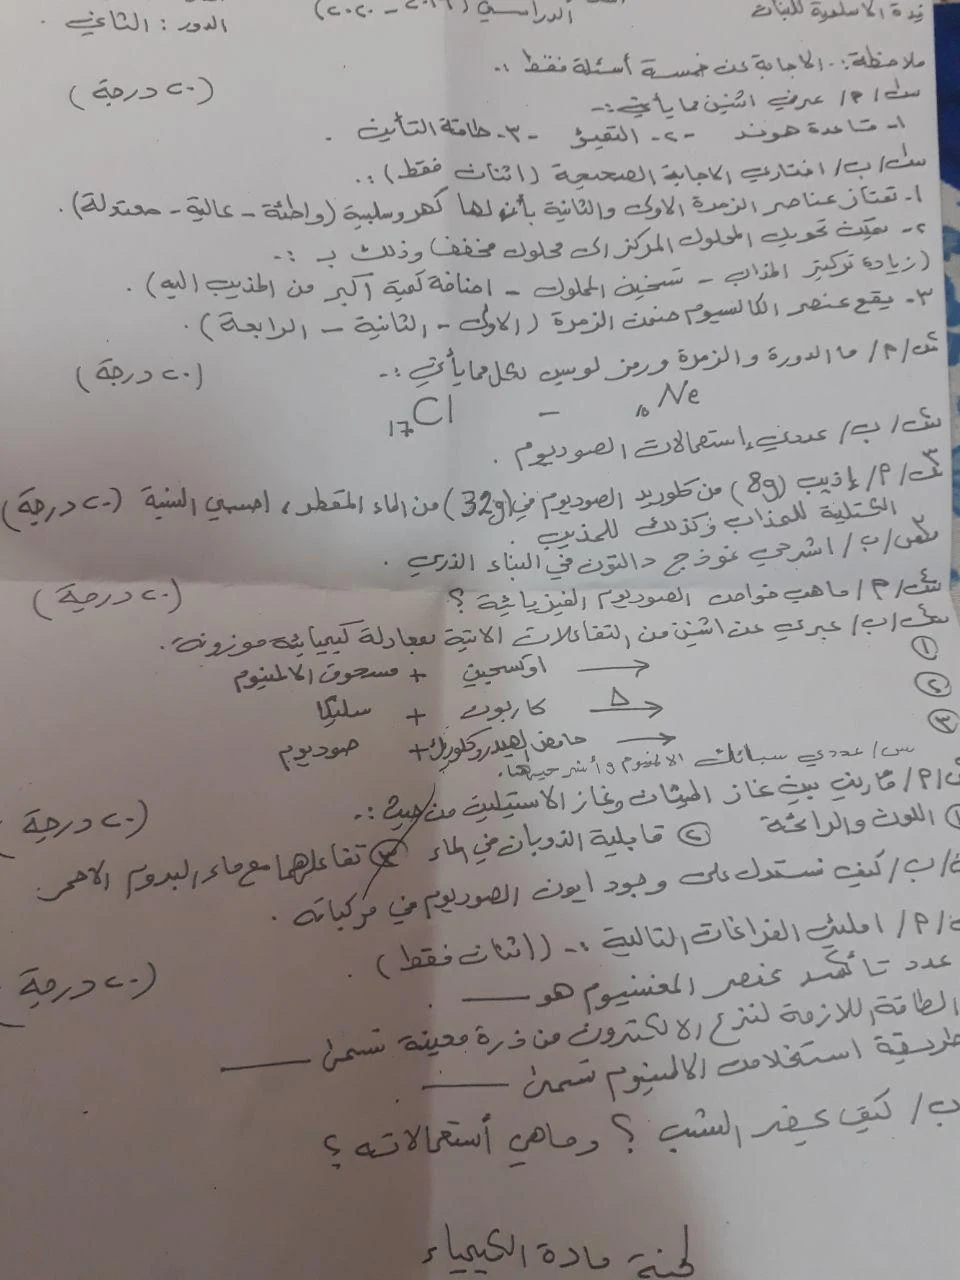 الدراسي (٢٠١٩ - ٢٠٢٠)
الدور : الثاني
ملاحظة :. الاجابة عن خمسة أسئلة فقط :.
س١/ م/ عرفي اثنين مما يأتي :-
(٢٠ درجة)
١- قاعدة هوند -٢- التقيؤ -٣- طاقة التأين .
س١/ ب/ اختاري الاجابة الصحيحة (اثنان فقط) :.
١- تمتاز عناصر الزمرة الاولى والثانية بأن لها كهروسلبية (واطئة - عالية - معتدلة).
٢- يمكن تحويل المحلول المركز الى محلول مخفف وذلك بـ :-
(زيادة تركيز المذاب - تسخين المحلول - اضافة كمية أكبر من المذيب اليه) .
٣- يقع عنصر الكالسيوم ضمن الزمرة (الاولى - الثانية - الرابعة) .
س٢/ م/ ما الدورة والزمرة ورمز لويس لكل مما يأتي :-
(٢٠ درجة)
₁₀Ne - ₁₇Cl
س٢/ ب/ عددي إستعمالات الصوديوم .
س٣/ م/ إذيب (8g) من كلوريد الصوديوم في (32g) من الماء المقطر ، احسبي النسبة (٢٠ درجة)
الكتلية للمذاب وكذلك للمذيب .
س٣/ ب/ اشرحي نموذج دالتون في البناء الذري .
س٤/ م/ ماهي خواص الصوديوم الفيزيائية ؟
(٢٠ درجة)
س٤/ ب/ عبري عن اثنين من التفاعلات الاتية بمعادلة كيميائية موزونة .
① مسحوق الالمنيوم + اوكسجين ⟶
② سليكا + كاربون ⟶ Δ
③ صوديوم + حامض الهيدروكلوريك ⟶
س/ عددي سبائك الالمنيوم وأشرحيها.
م/ قارني بين غاز الميثان وغاز الاستيلين من حيث :.
(٢٠ درجة)
اللون والرائحة ② قابلية الذوبان في الماء ③ تفاعلهما مع ماء البروم الاحمر
ب/ كيف نستدل على وجود ايون الصوديوم في مركباته .
م/ املئي الفراغات التالية :- (اثنان فقط) .
(٢٠ درجة)
عدد تأكسد عنصر المغنسيوم هو ــــــ .
الطاقة اللازمة لنزع الالكترون من ذرة معينة تسمى ــــــ
طريقة استخلاص الالمنيوم تسمى ــــــ
ب/ كيف يحضر الشب ؟ وماهي أستعمالاته ؟
لجنة مادة الكيمياء